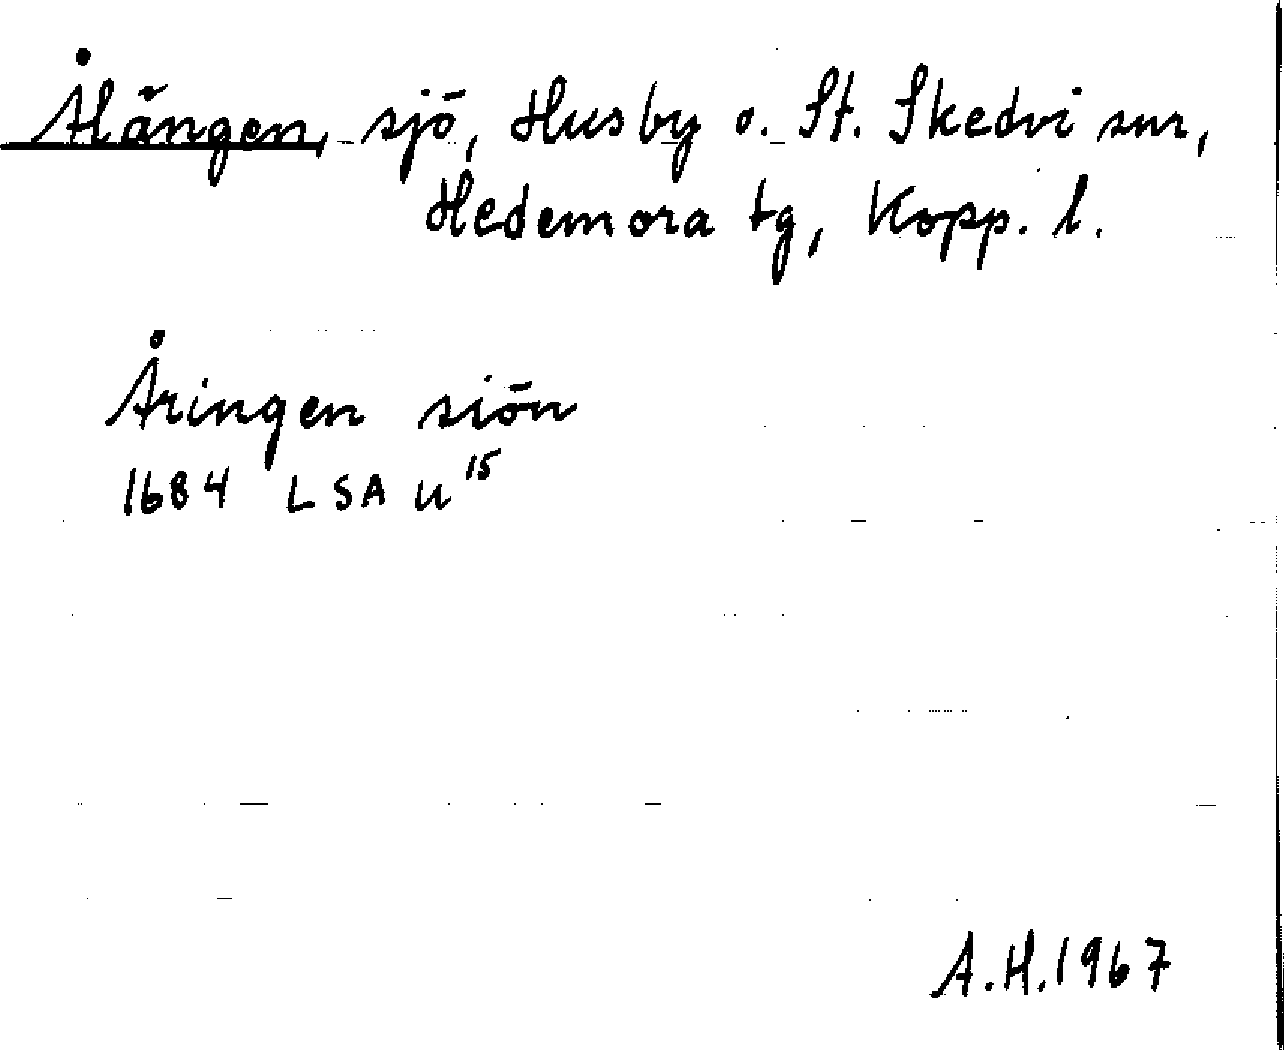 Ålången, sjö, Husby o. St. Skedvi snr,
Hedemora tg, Kopp. l.
Åringen siön
1684 LSA U15
A.H. 1967